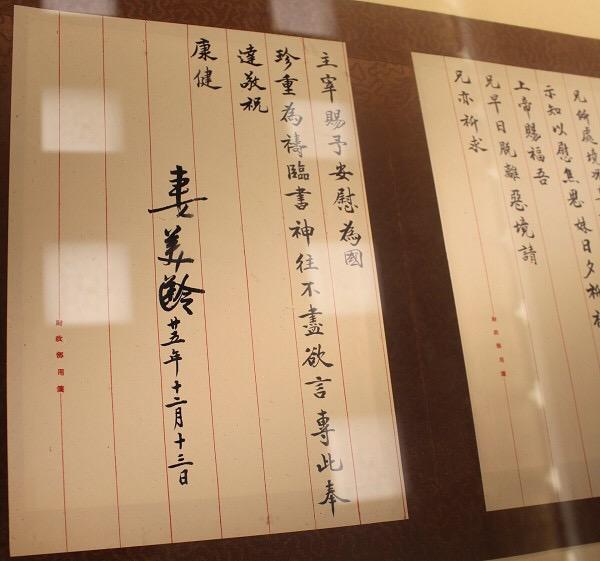 兄所處境
示知以慰焦思妹日夕祈禱
上帝賜福吾
兄早日脫離惡境請
兄亦祈求
財政部用箋
主宰賜予安慰為國
珍重為禱臨書神往不盡欲言專此奉
達敬祝
康健
妻美齡廿五年十二月十三日
財政部用箋